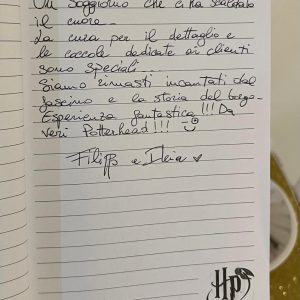 Un soggiorno che ci ha scaldato
il cuore.
La cura per il dettaglio e
le coccole dedicate ai clienti
sono speciali.
Siamo rimasti incantati dal
fascino e la storia del borgo.
Esperienza fantastica!!! Da
veri Potterhead!!!
Filippo e Ilaria
HP